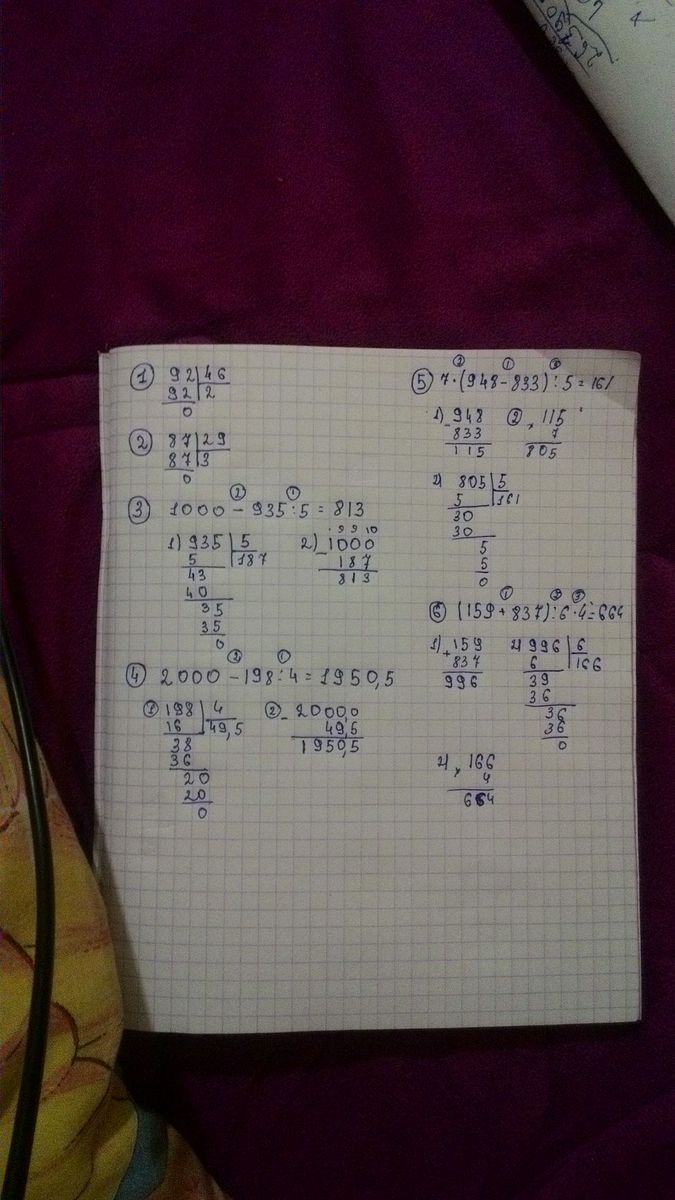 ① 92 | 46
92 | 2
0
② 87 | 29
87 | 3
0
② ①
③ 1000 - 935 : 5 = 813
1) 935 | 5
5 | 187
43
40
35
35
0
· 9 9 10
2) - 1000
187
813
② ①
④ 2000 - 198 : 4 = 1950,5
① 198 | 4
16 | 49,5
38
36
20
20
0
② - 2000,0
49,5
1950,5
② ① ③
⑤ 7 · (948 - 833) : 5 = 161
1) - 948
833
115
② × 115
7
805
2) 805 | 5
5 | 161
30
30
5
5
0
① ② ③
⑥ (159 + 837) : 6 · 4 = 664
1) + 159
837
996
2) 996 | 6
6 | 166
39
36
36
36
0
2) × 166
4
664